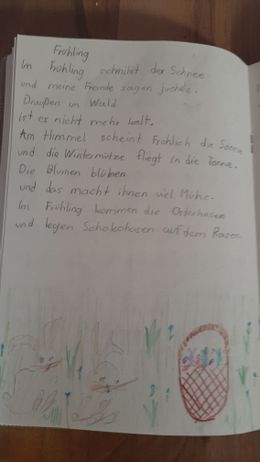 Frühling
Im Frühling schmilzt der Schnee.
und meine Freunde sagen juchée.
Draußen im Wald
ist es nicht mehr kalt.
Am Himmel scheint Fröhlich die Sonne
und die Wintermütze fliegt in die Tonne.
Die Blumen blühen
und das macht ihnen viel Mühe.
Im Frühling kommen die Osterhasen
und legen Schokohasen auf dem Rasen.